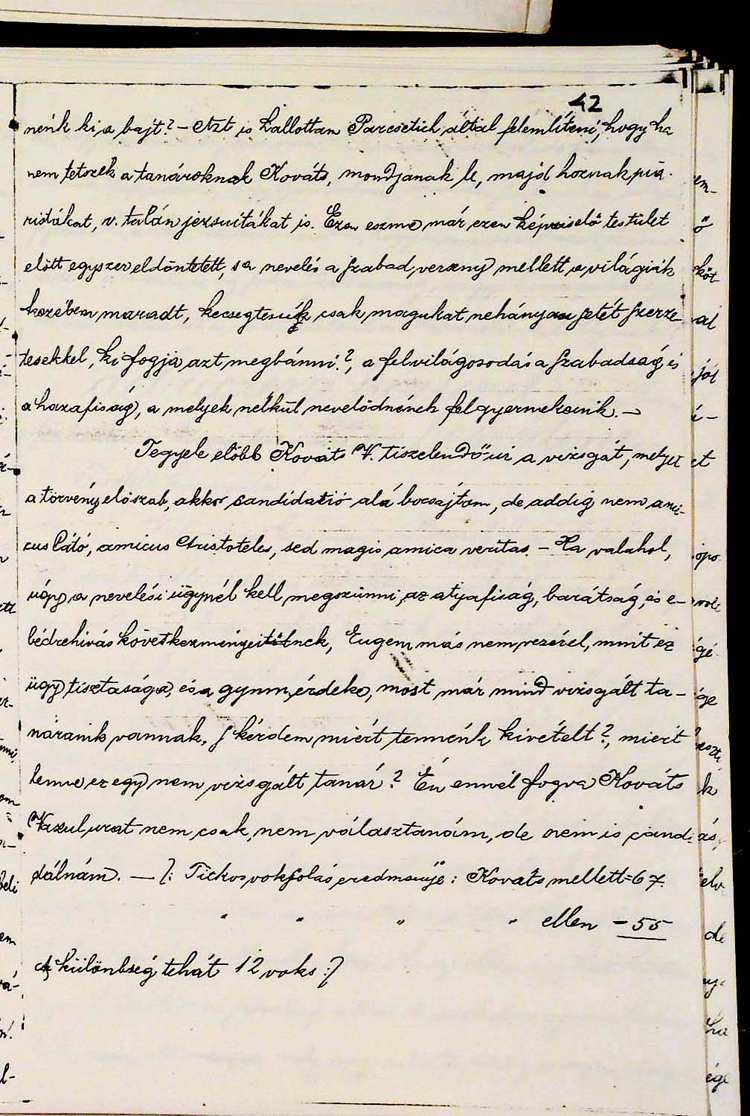 42
nénk ki a bajt? – Azt is hallottam Parcsetich által felemlíteni, hogy ha
nem tetszek a tanároknak Kováts, mondjanak le, majd hoznak pia-
ristákat, v. talán jezsuitákat is. Ezen eszme már ezen képviselő testület
előtt egyszer eldöntetett, s a nevelés a szabad verseny mellett a világiak
kezében maradt, kecsegtessék csak magukat nehányan setét szerze-
tesekkel, ki fogja azt megbánni?, a felvilágosodás a szabadság és
a hazafiság, a melyek nélkül nevelődnének fel gyermekeink. –
Tegyele előbb Kováts V. tisztelendő úr a vizsgát, melyet
a törvény előszab, akkor candidatió alá bocsájtom, de addig nem ami-
cus Plátó, amicus Aristoteles, sed magis amica veritas. – Ha valahol,
úgy a nevelési ügynél kell megszünni az atyafiság, barátság, és e-
bédrehivás következményeinek, Engem más nem vezérel, mint ez
ügy tisztasága, és a gymn. érdeke, most már mind vizsgált ta-
náraink vannak, s kérdem miért tennénk kivételt?, miért
lenne ez egy nem vizsgált tanár? Én ennél fogva Kováts
Vazul urat nem csak nem választanám, de nem is candi-
dálnám. — /: Titkos voksolás eredménye: Kovats mellett = 67.
" " " " ellen – 55
A különbség tehát 12 voks :/